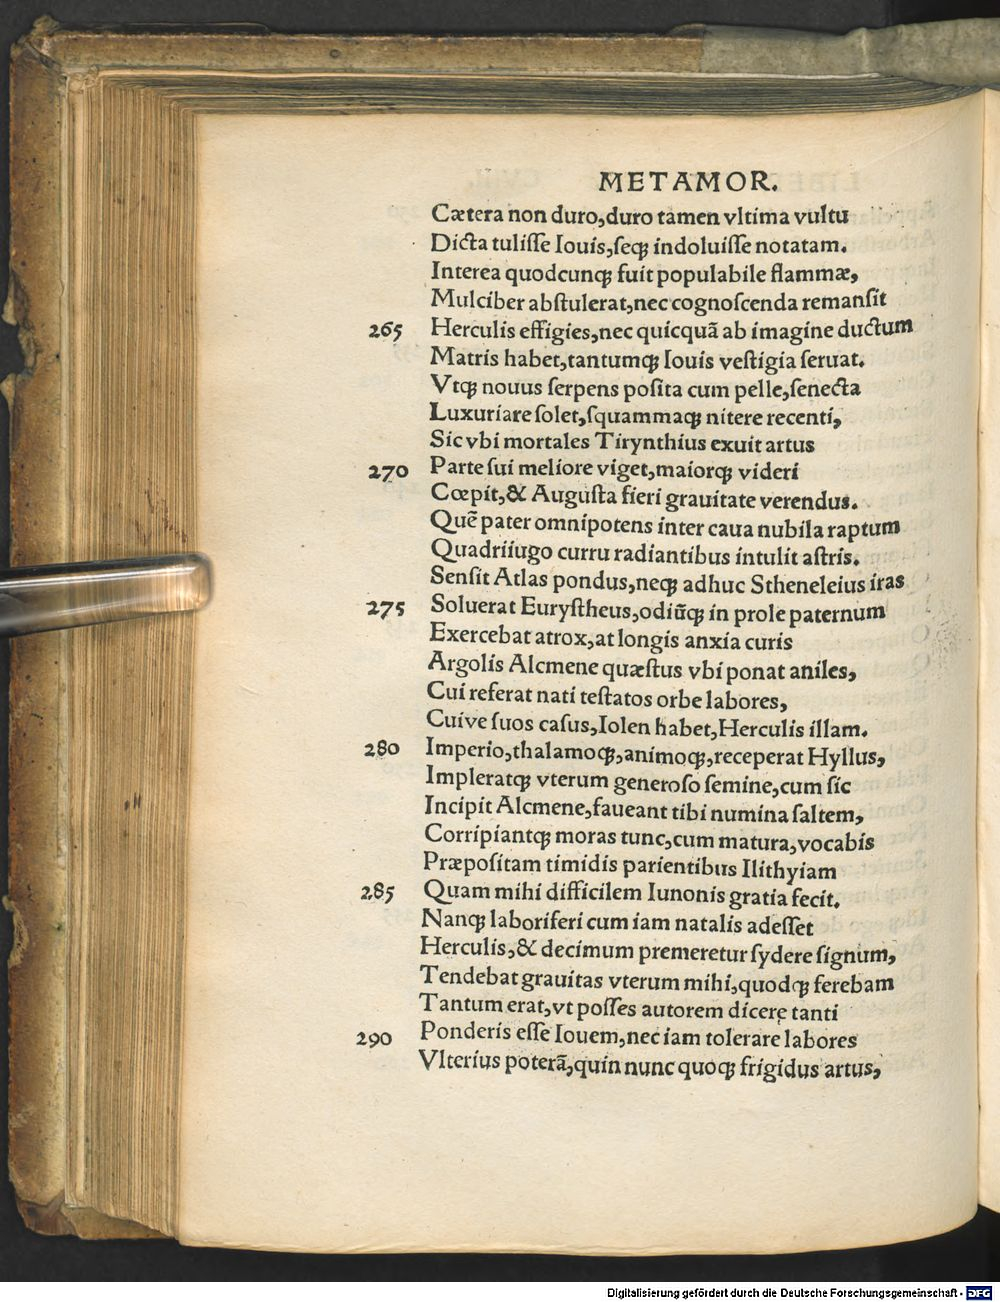 METAMOR.
Cætera non duro,duro tamen vltima vultu
Dicta tuliſſe Iouis,ſeqꝫ indoluiſſe notatam.
Interea quodcunqꝫ fuit populabile flammæ,
Mulciber abſtulerat,nec cognoſcenda remanſit
265 Herculis effigies,nec quicquã ab imagine ductum
Matris habet,tantumqꝫ Iouis veſtigia ſeruat.
Vtqꝫ nouus ſerpens poſita cum pelle,ſenecta
Luxuriare ſolet,ſquammaqꝫ nitere recenti,
Sic vbi mortales Tirynthius exuit artus
270 Parte ſui meliore viget,maiorqꝫ videri
Cœpit,& Auguſta fieri grauitate verendus.
Quẽ pater omnipotens inter caua nubila raptum
Quadriiugo curru radiantibus intulit aſtris.
Senſit Atlas pondus,neqꝫ adhuc Stheneleius iras
275 Soluerat Euryſtheus,odiũqꝫ in prole paternum
Exercebat atrox,at longis anxia curis
Argolis Alcmene quæſtus vbi ponat aniles,
Cui referat nati teſtatos orbe labores,
Cuive ſuos caſus,Iolen habet,Herculis illam.
280 Imperio,thalamoqꝫ,animoqꝫ,receperat Hyllus,
Impleratqꝫ vterum generoſo ſemine,cum ſic
Incipit Alcmene,faueant tibi numina ſaltem,
Corripiantqꝫ moras tunc,cum matura,vocabis
Præpoſitam timidis parientibus Ilithyiam
285 Quam mihi difficilem Iunonis gratia fecit.
Nanqꝫ laboriferi cum iam natalis adeſſet
Herculis,& decimum premeretur ſydere ſignum,
Tendebat grauitas vterum mihi,quodqꝫ ferebam
Tantum erat,vt poſſes autorem dicerę tanti
290 Ponderis eſſe Iouem,nec iam tolerare labores
Vlterius poterã,quin nunc quoqꝫ frigidus artus,
Digitalisierung gefördert durch die Deutsche Forschungsgemeinschaft - DFG